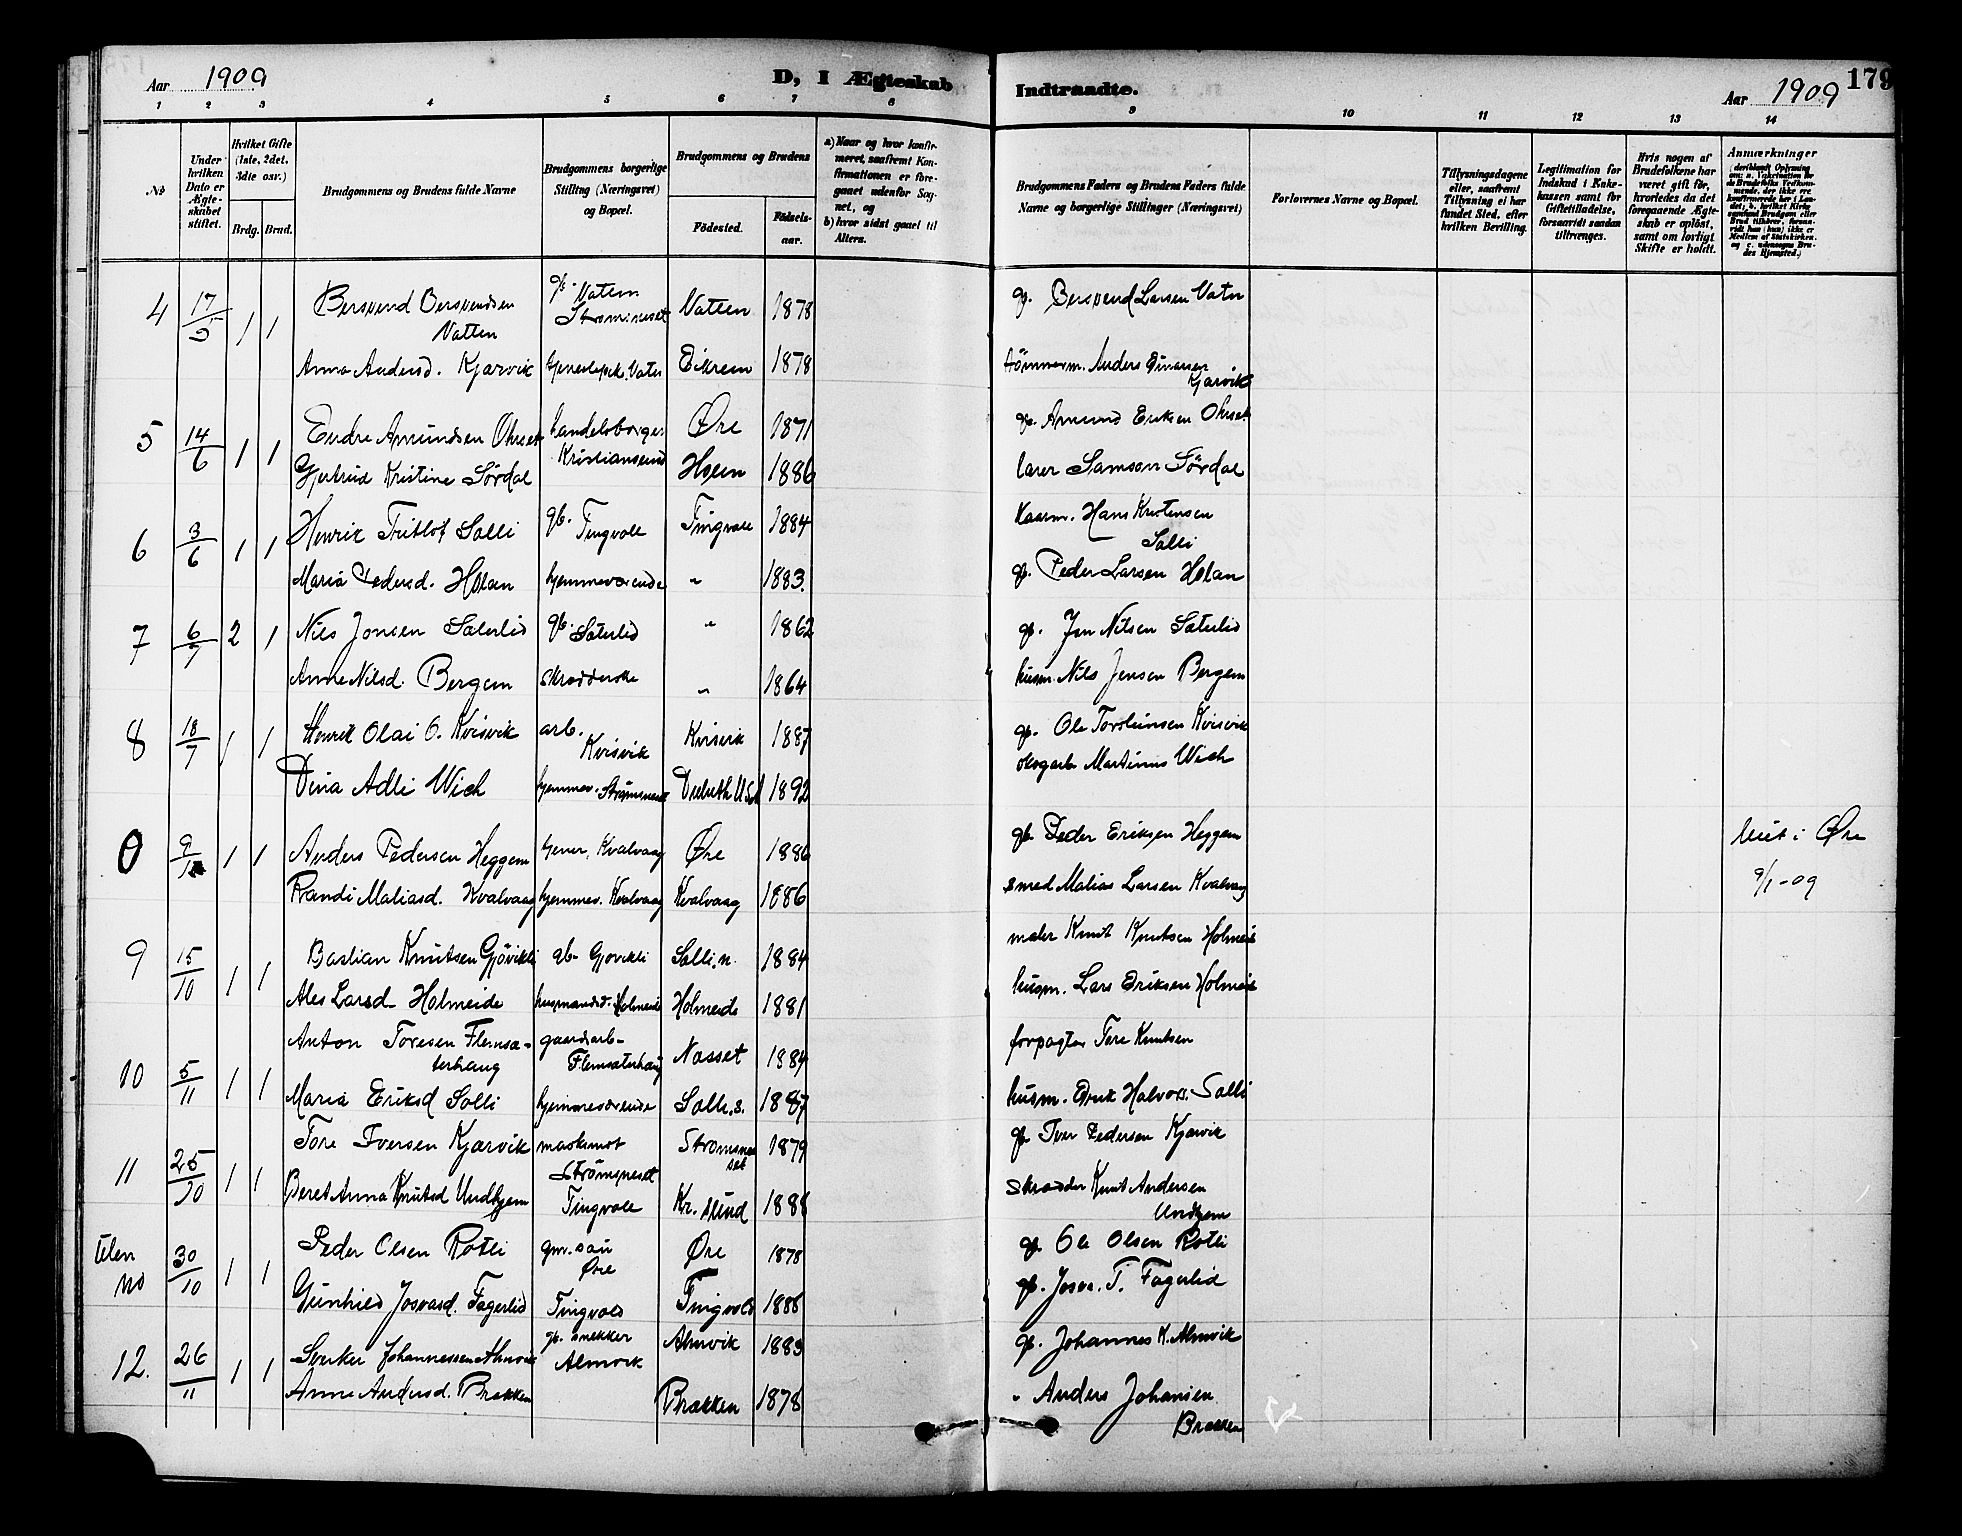 Aar 1909
D, I Ægteskab Indtraadte.
Aar 1909
179
1 2 3 4 5 6 7 8 9 10 11 12 13 14
No
Under hvilken Dato er Ægteskabet stiftet.
Hvilket Gifte (1ste, 2det, 3dte osv.)
Brdg. Brud.
Brudgommens og Brudens fulde Navne
Brudgommens borgerlige Stilling (Næringsvei) og Bopæl.
Brudgommens og Brudens
Fødested.
Fødselsaar.
a) Naar og hvor konfirmeret, saafremt Konfirmationen er foregaaet udenfor Sognet, og
b) hvor sidst gaaet til Alters.
Brudgommens Faders og Brudens Faders fulde Navne og borgerlige Stillinger (Næringsvei)
Forlovernes Navne og Bopæl.
Tillysningsdagene eller, saafremt Tillysning ei har fundet Sted, efter hvilken Bevilling.
Legitimation for Indskud i Enkekassen samt for Giftetilladelse, forsaavidt saadan tiltrænges.
Hvis nogen af Brudefolkene har været gift før, hvorledes da det foregaaende Ægteskab er opløst, samt om lovligt Skifte er holdt.
Anmærkninger
4 17/5 1 1 Bersvend Bersvendsen Vatten gb. Vatem Strømsneset Vatten 1878 gb. Bersvend Larsen Vatn
Anna Andersd. Kjørvik Eikrem 1878 tømmerm. Anders Einarsen Kjørvik
5 14/6 1 1 Endre Amundsen Ohrset handelsborger Kristiansund Øre 1871 gb. Amund Eriksen Ohrset
Gjertrud Kristine Sørdal Hoem 1886 lærer Samson Sørdal
6 3/6 1 1 Henrik Fritlof Solli gb. Tingvoll Tingvoll 1884 Hans Kristensen Solli
Maria Pedersd. Holan hjemmeværende " 1883. gb. Peder Larsen Holan
7 6/7 2 1 Nils Jonsen Sæterlid gb. Sæterlid " 1862 gb. Jon Nilsen Sæterlid
Anne Nilsd. Bergem skrædderske " 1864 husm. Nils Jensen Bergem
8 18/7 1 1 Henrik Olai O. Kvisvik arb. Kvisvik Kvisvik 1887 gb. Ole Torsteinsen Kvisvik
Dina Adli Wich hjemmev. Strømsneset Duluth U.S.A 1892 Martinus Wich
0 9/1 1 1 Anders Pedersen Heggem Kvalvaag Øre 1886 gb. Peder Eriksen Heggem
Viet i Øre
9/1-09
Randi Maliasd. Kvalvaag hjemmev. Kvalvaag Kvalvaag 1886 smed Malias Larsen Kvalvaag
9 15/10 1 1 Bastian Knutsen Gjøvikli gb. Gjøvikli Solli.n. 1884 maler Knut Knutsen Holmeide
Ales Larsd. Holmeide husmandsd. Holmeide Holmeide 1881 husm. Lars Eriksen Holmeide
10 5/11 1 1 Anton Toresen Flemsæterhaug gaardarb. Flemsæterhaug Nasset 1884 forpagter Tore Knutsen
Maria Eriksd Solli hjemmeværende Solli.s. 1887 husm. Erik Halvors. Solli
11 25/10 1 1 Tore Iversen Kjørvik maskinist Strømsneset Strømsneset 1879 gb. Iver Pedersen Kjørvik
Beret Anna Knutsd Undhjem Tingvoll Kr. sund 1888 skrædder Knut Andersen Undhjem
uten no 30/10 1 1 Peder Olsen Rotli gm. søn Øre Øre 1878 gb. Ole Olsen Rotli
Gunhild Josvasd. Fagerlid Tingvold Tingvold 1886 gb. Josva. T. Fagerlid
12. 26/11 1 1 Sivert Johannessen Almvik gb. snekker Almvik Almvik 1883 gb. Johannes K. Almvik
Anne Andersd. Brækken Brækken 1878 " Anders Johansen Brækken